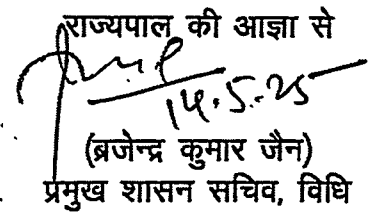 राज्यपाल की आज्ञा से
14.5.25
(ब्रजेन्द्र कुमार जैन)
प्रमुख शासन सचिव, विधि